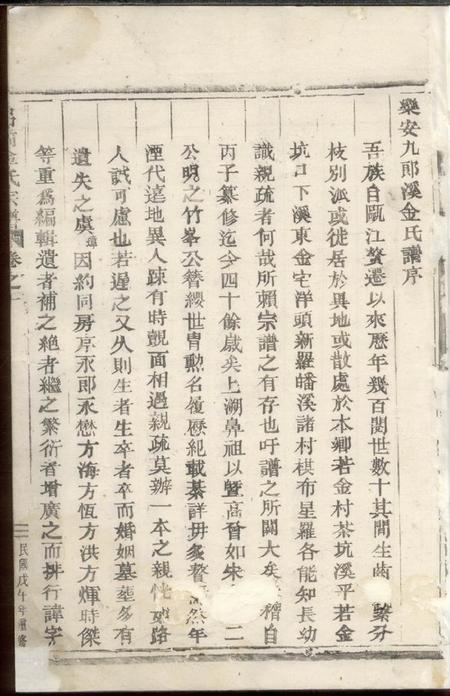 樂安九郎溪金氏譜序
吾族自甌江發遷以來歷年幾百閱世數十其間生齒繁分
枝別派或徙居於異地或散處於本鄉若金村茶坑溪平若金
坑口下溪東金宅洋頭新羅皤溪諸村棋布星羅各能知長幼
識親疏者何哉所賴宗譜之有存也吁譜之所關大矣稽自
丙子纂修迄今四十餘歲矣上溯鼻祖以曁高曾如朱二
公明之竹峯公簪纓世胄勳名履歷紀載綦詳毋多瞀然年
湮代遠地異人踈有時覿面相遇親疏莫辦一本之親性更路
人誠可慮也若遲之又久則生者生卒者卒而婚姻墓塟多有
遺失之虞因約同房序永郎永懋方海方恆方洪方煇時傑
等重爲編輯遺者補之絶者繼之繁衍者增廣之而排行諱字
金氏宗譜 卷之一
民國戊午年重修